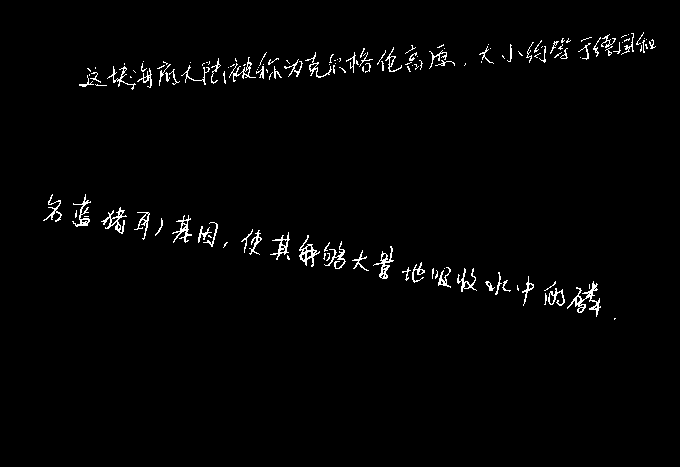 这块海底大陆被称为克尔格伦高原，大小约等于德国和
名蓝猪耳）基因，使其能够大量地吸收水中的磷．